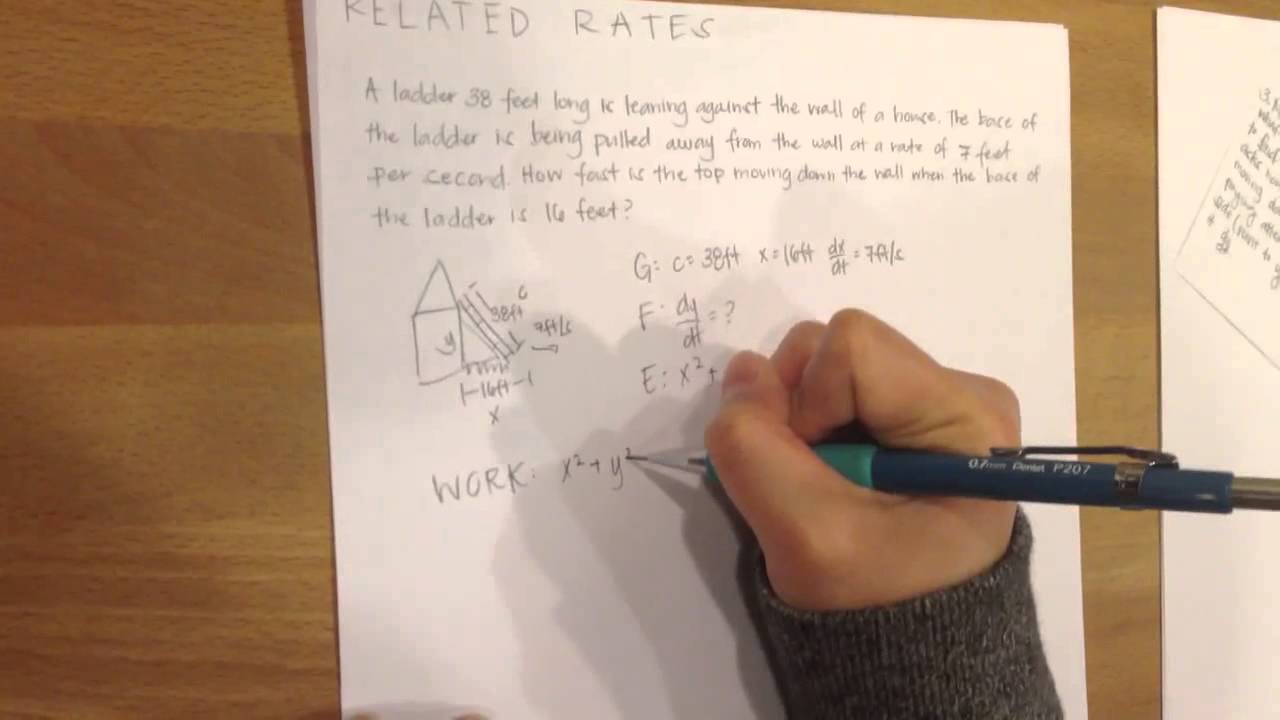 RELATED RATES
A ladder 38 feet long is leaning against the wall of a house. The base of
the ladder is being pulled away from the wall at a rate of 7 feet
per second. How fast is the top moving down the wall when the base of
the ladder is 16 feet?
G: c = 38ft x = 16ft dx/dt = 7ft/s
F: dy/dt = ?
E: x² +
c
38ft
7ft/s
y
16ft
x
WORK: x² + y²
0.7mm Pentel P207
to
moving
side
dy
dt